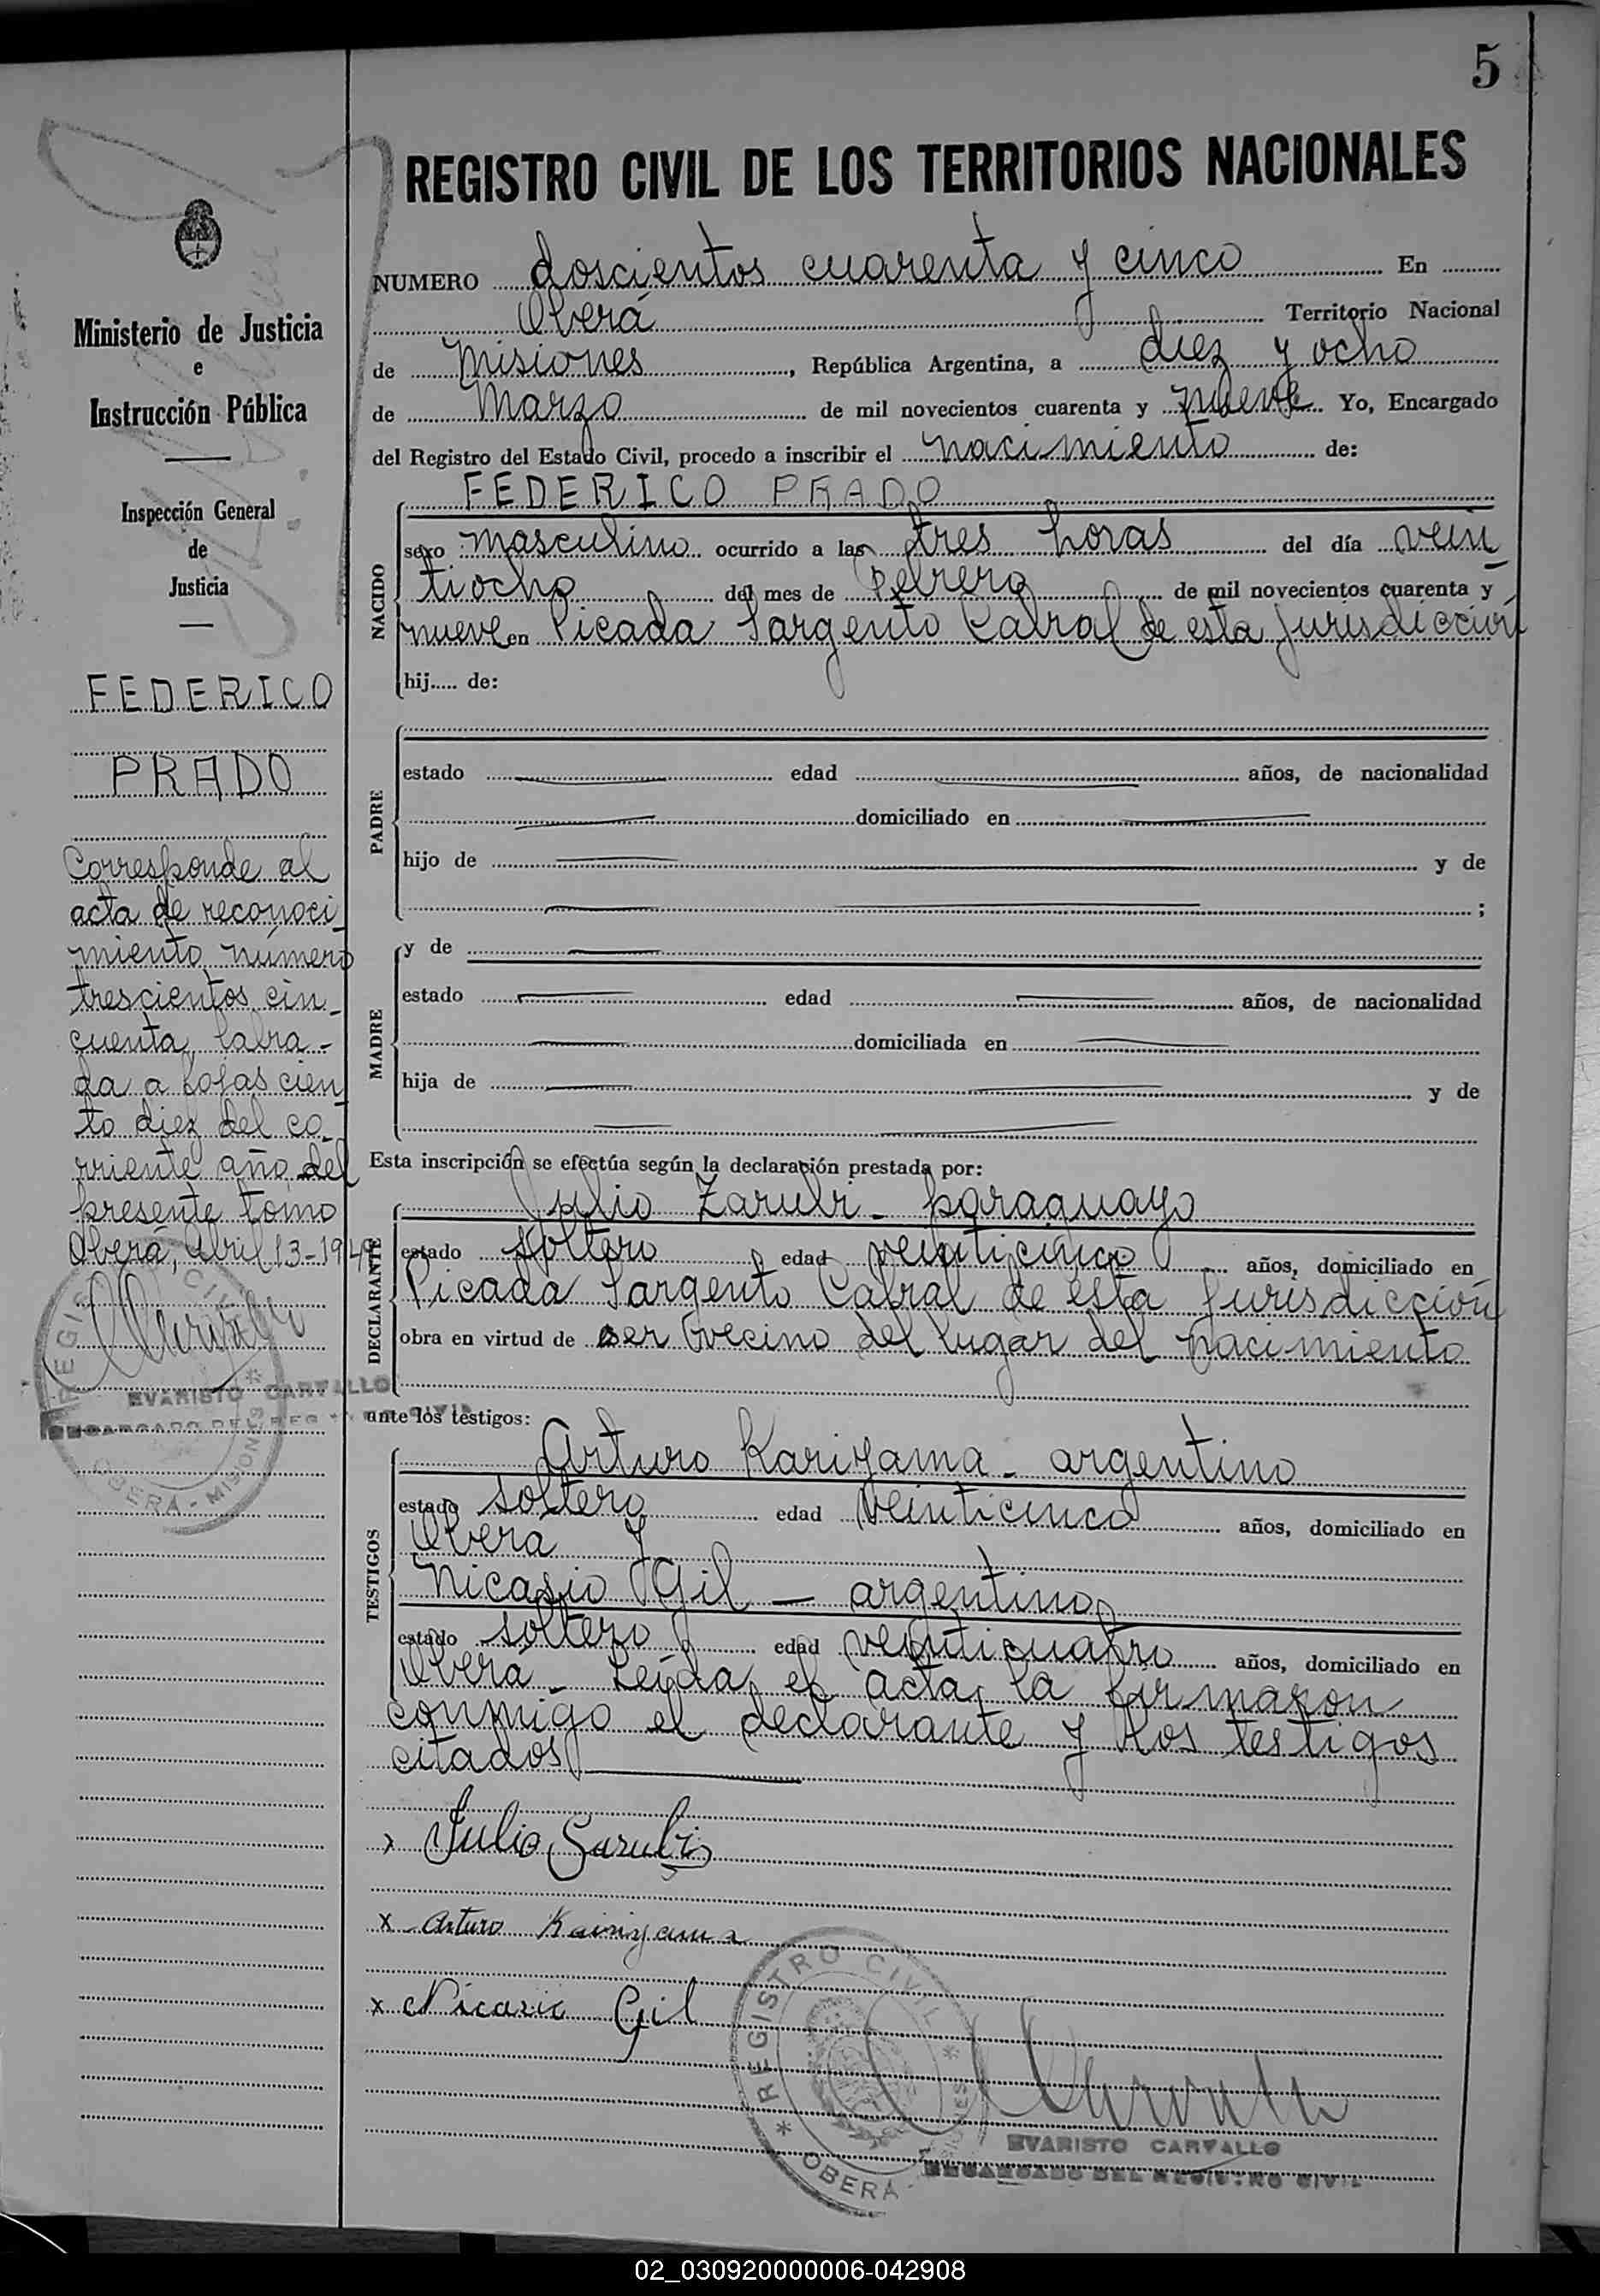 5
REGISTRO CIVIL DE LOS TERRITORIOS NACIONALES
Ministerio de Justicia
e
Instrucción Pública
Inspección General
de
Justicia
FEDERICO
PRADO
Corresponde al
acta de reconoci-
miento número
trescientos cin-
cuenta, labra-
da a fojas cien-
to diez del co-
rriente año del
presente tomo
Oberá, Abril 13-1949
REGISTRO CIVIL
EVARISTO CARVALLO
ENCARGADO DEL REGISTRO CIVIL
OBERÁ - MISIONES
NUMERO doscientos cuarenta y cinco En
Oberá Territorio Nacional
de Misiones, República Argentina, a diez y ocho
de Marzo de mil novecientos cuarenta y nueve Yo, Encargado
del Registro del Estado Civil, procedo a inscribir el nacimiento de:
NACIDO
FEDERICO PRADO
sexo masculino ocurrido a las tres horas del día vein-
tiocho del mes de Febrero de mil novecientos cuarenta y
nueve en Picada Sargento Cabral de esta jurisdicción
hij..... de:
PADRE
estado edad años, de nacionalidad
domiciliado en
hijo de y de
;
MADRE
y de
estado edad años, de nacionalidad
domiciliada en
hija de y de
Esta inscripción se efectúa según la declaración prestada por:
DECLARANTE
Julio Zarubi - paraguayo
estado soltero edad veinticinco años, domiciliado en
Picada Sargento Cabral de esta jurisdicción
obra en virtud de ser vecino del lugar del nacimiento
ante los testigos:
TESTIGOS
Arturo Kariyama - argentino
estado soltero edad veinticinco años, domiciliado en
Oberá y
Nicasio Gil — argentino
estado soltero edad veinticuatro años, domiciliado en
Oberá - Leída el acta, la firmaron
conmigo el declarante y los testigos
citados
x Julio Sarubi
x Arturo Kairiyama
x Nicasio Gil
REGISTRO CIVIL
OBERÁ - MISIONES
EVARISTO CARVALLO
ENCARGADO DEL REGISTRO CIVIL
02_030920000006-042908